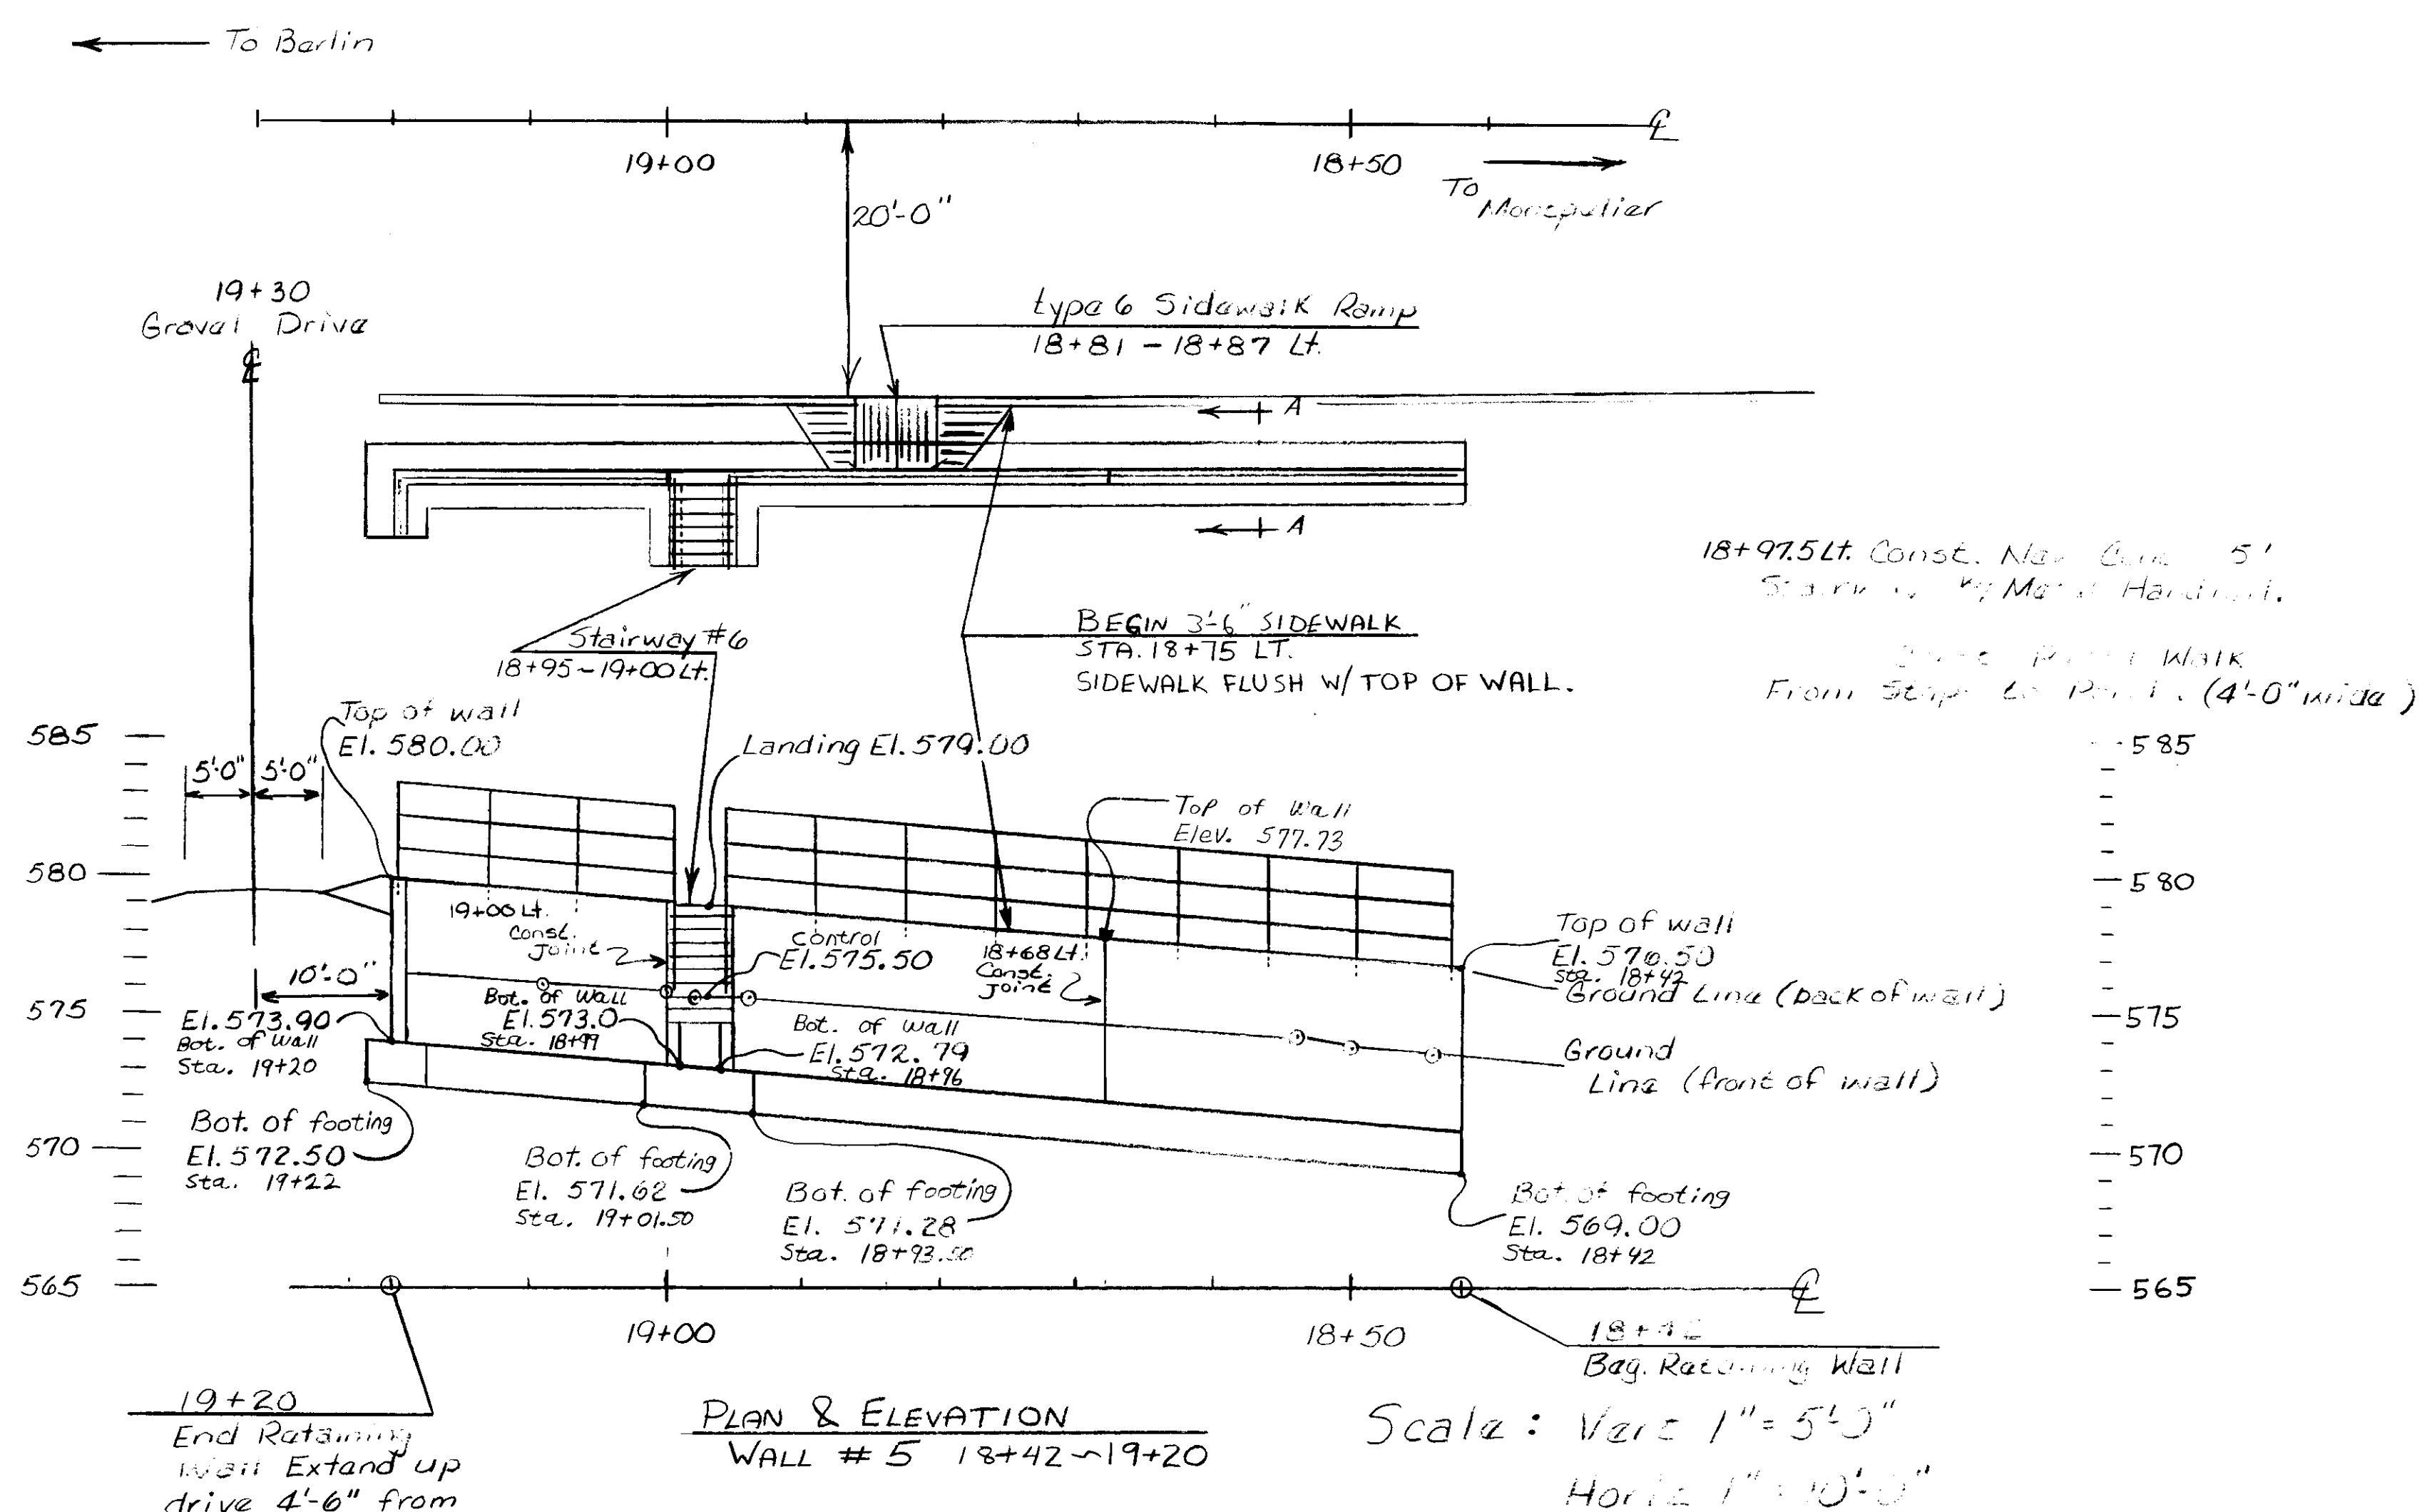 To Berlin
19+00
18+50
℄
To
Montpelier
20'-0"
19+30
Gravel Drive
℄
type 6 Sidewalk Ramp
18+81 - 18+87 Lt.
A
A
18+97.5 Lt. Const. New Conc. 5'
Metal Handrail.
Walk
From Steps to (4'-0" wide)
Stairway #6
18+95-19+00 Lt.
BEGIN 3'-6" SIDEWALK
STA. 18+75 LT.
SIDEWALK FLUSH W/ TOP OF WALL.
Top of wall
El. 580.00
Landing El. 579.00
585
580
575
570
565
5'-0" 5'-0"
Top of Wall
Elev. 577.73
585
580
575
570
565
19+00 Lt.
Const.
Joint
Control
El. 575.50
18+68 Lt.
Const.
Joint
Top of wall
El. 576.50
Sta. 18+42
Ground Line (back of wall)
10'-0"
El. 573.90
Bot. of Wall
Sta. 19+20
Bot. of Wall
El. 573.0
Sta. 18+99
Bot. of wall
El. 572.79
Sta. 18+96
Ground
Line (front of wall)
Bot. of footing
El. 572.50
Sta. 19+22
Bot. of footing
El. 571.62
Sta. 19+01.50
Bot. of footing
El. 571.28
Sta. 18+93.50
Bot. of footing
El. 569.00
Sta. 18+42
19+00
18+50
℄
18+42
Beg. Retaining Wall
19+20
End Retaining
Wall Extend up
drive 4'-6" from
PLAN & ELEVATION
WALL # 5 18+42~19+20
Scale: Vert 1" = 5'-0"
Horiz 1" = 10'-0"